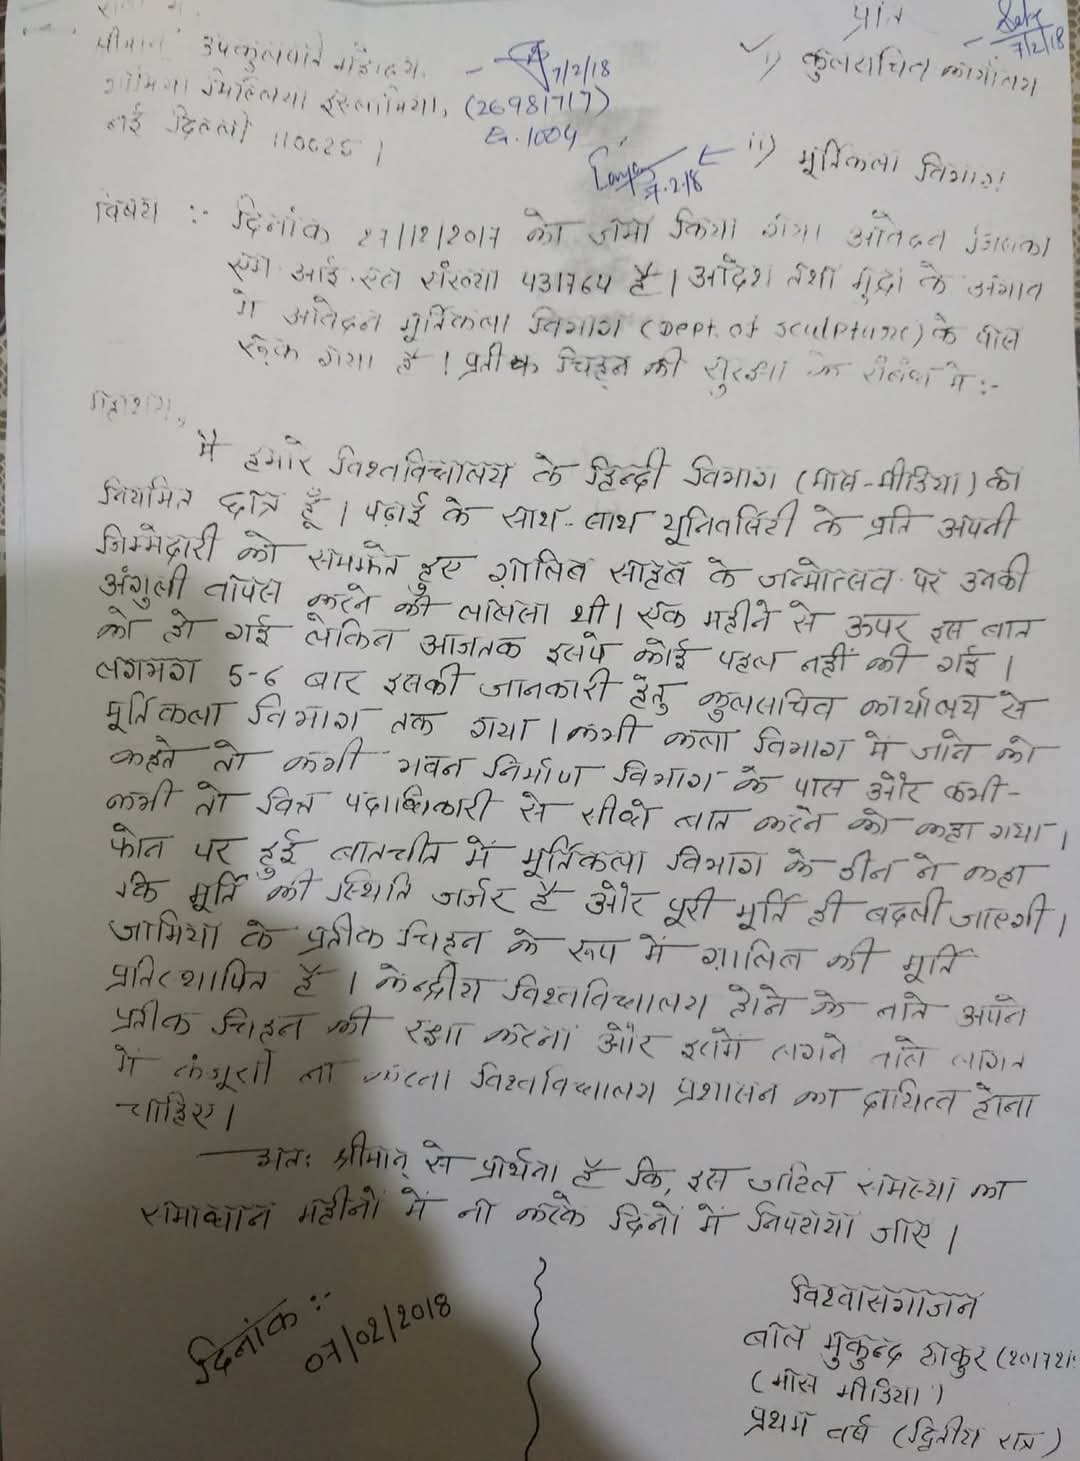 प्रति
श्रीमान् उपकुलपति महोदय,
7/2/18
7/2/18
i) कुलसचिव कार्यालय
जामिया मिल्लिया इस्लामिया, (26981717)
नई दिल्ली 110025 |
E. 1004
ii) मूर्तिकला विभाग।
7.2.18
विषय :- दिनांक 27/12/2017 को जमा किया गया आवेदन जिसका
एम. आई. एस संख्या 431764 है। आदेश तथा मुद्रा के अभाव
में आवेदन मूर्तिकला विभाग (Dept. of Sculpture) के पास
रूक गया है ! प्रतीक चिह्न की सुरक्षा के संबंध में :-
महाशय,
मैं हमारे विश्वविद्यालय के हिन्दी विभाग (मास-मीडिया) का
नियमित छात्र हूँ। पढ़ाई के साथ-साथ यूनिवर्सिटी के प्रति अपनी
जिम्मेदारी को समझते हुए ग़ालिब साहब के जन्मोत्सव पर उनकी
अंगुली वापस करने की लालसा थी। एक महीने से ऊपर इस बात
को हो गई लेकिन आजतक इसपे कोई पहल नहीं की गई।
लगभग 5-6 बार इसकी जानकारी हेतु कुलसचिव कार्यालय से
मूर्तिकला विभाग तक गया। कभी कला विभाग में जाने को
कहते तो कभी भवन निर्माण विभाग के पास और कभी-
कभी तो वित्त पदाधिकारी से सीधे बात करने को कहा गया।
फोन पर हुई बातचीत में मूर्तिकला विभाग के डीन ने कहा
कि मूर्ति की स्थिति जर्जर है और पूरी मूर्ति ही बदली जाएगी।
जामिया के प्रतीक चिह्न के रूप में ग़ालिब की मूर्ति
प्रतिस्थापित है। केन्द्रीय विश्वविद्यालय होने के नाते अपने
प्रतीक चिह्न की रक्षा करना और इसमें लगने वाले लागत
में कंजूसी ना करना विश्वविद्यालय प्रशासन का दायित्व होना
चाहिए।
अतः श्रीमान् से प्रार्थना है कि, इस जटिल समस्या का
समाधान महीनों में ना करके दिनों में निपटाया जाए।
विश्वासभाजन
दिनांक :-
07/02/2018
बाल मुकुन्द ठाकुर (201721
(मास मीडिया)
प्रथम वर्ष (द्वितीय सत्र)